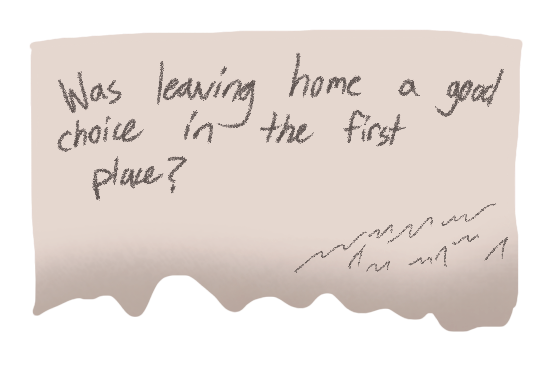 Was leaving home a good
choice in the first
place?